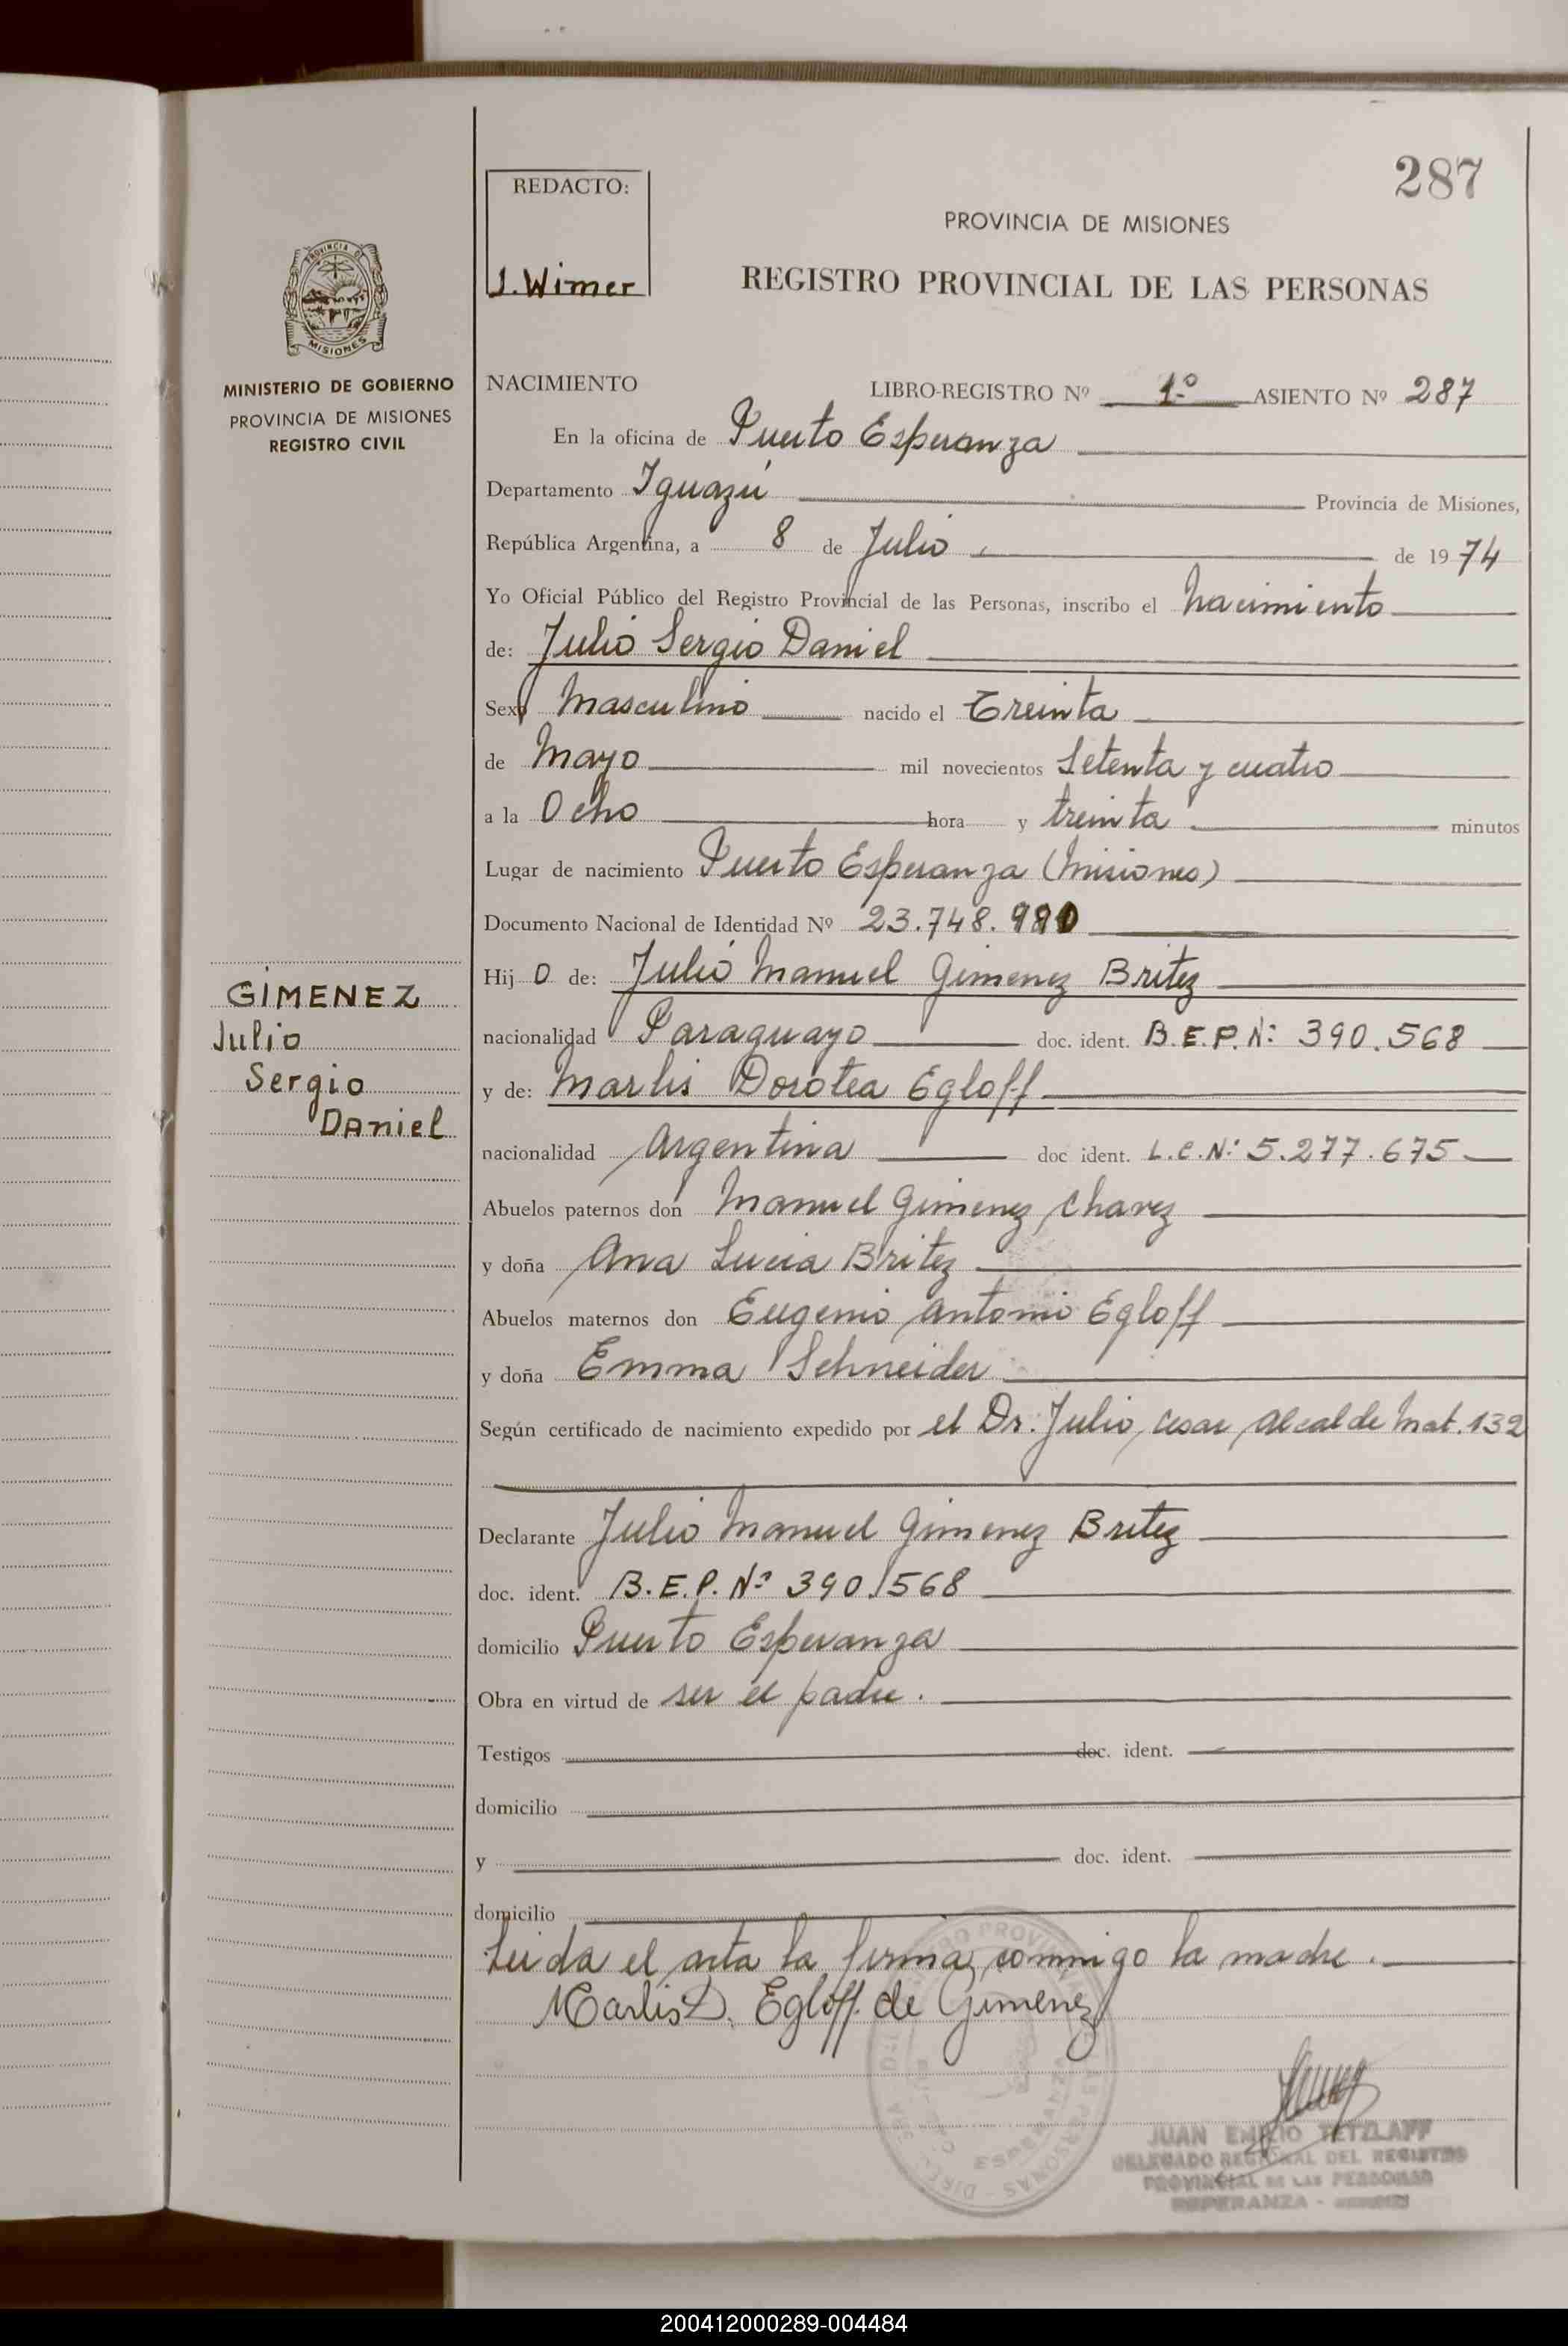 287
REDACTO:
J. Wimer
PROVINCIA DE MISIONES
REGISTRO PROVINCIAL DE LAS PERSONAS
PROVINCIA DE
MISIONES
MINISTERIO DE GOBIERNO
PROVINCIA DE MISIONES
REGISTRO CIVIL
NACIMIENTO LIBRO-REGISTRO Nº 1º ASIENTO Nº 287
En la oficina de Puerto Esperanza
Departamento Iguazú Provincia de Misiones,
República Argentina, a 8 de Julio de 1974
Yo Oficial Público del Registro Provincial de las Personas, inscribo el nacimiento
de: Julio Sergio Daniel
Sexo Masculino nacido el Treinta
de Mayo mil novecientos Setenta y cuatro
a la Ocho hora y treinta minutos
Lugar de nacimiento Puerto Esperanza (Misiones)
Documento Nacional de Identidad Nº 23.748.980
Hij o de: Julio Manuel Gimenez Britez
nacionalidad Paraguayo doc. ident. B.E.P.Nº: 390.568
y de: Marlis Dorotea Egloff
nacionalidad Argentina doc ident. L.C.Nº 5.277.675
Abuelos paternos don Manuel Gimenez Chavez
y doña Ana Lucia Britez
Abuelos maternos don Eugenio Antonio Egloff
y doña Emma Schneider
Según certificado de nacimiento expedido por el Dr. Julio Cesar Alcalde Mat. 132
Declarante Julio Manuel Gimenez Britez
doc. ident. B.E.P. Nº 390.568
domicilio Puerto Esperanza
Obra en virtud de ser el padre.
Testigos doc. ident.
domicilio
y doc. ident.
domicilio
Leida el acta la firma conmigo la madre.
Marlis D. Egloff de Gimenez
GIMENEZ
Julio
Sergio
Daniel
JUAN EMILIO TETZLAFF
DELEGADO REGIONAL DEL REGISTRO
PROVINCIAL DE LAS PERSONAS
ESPERANZA -
200412000289-004484